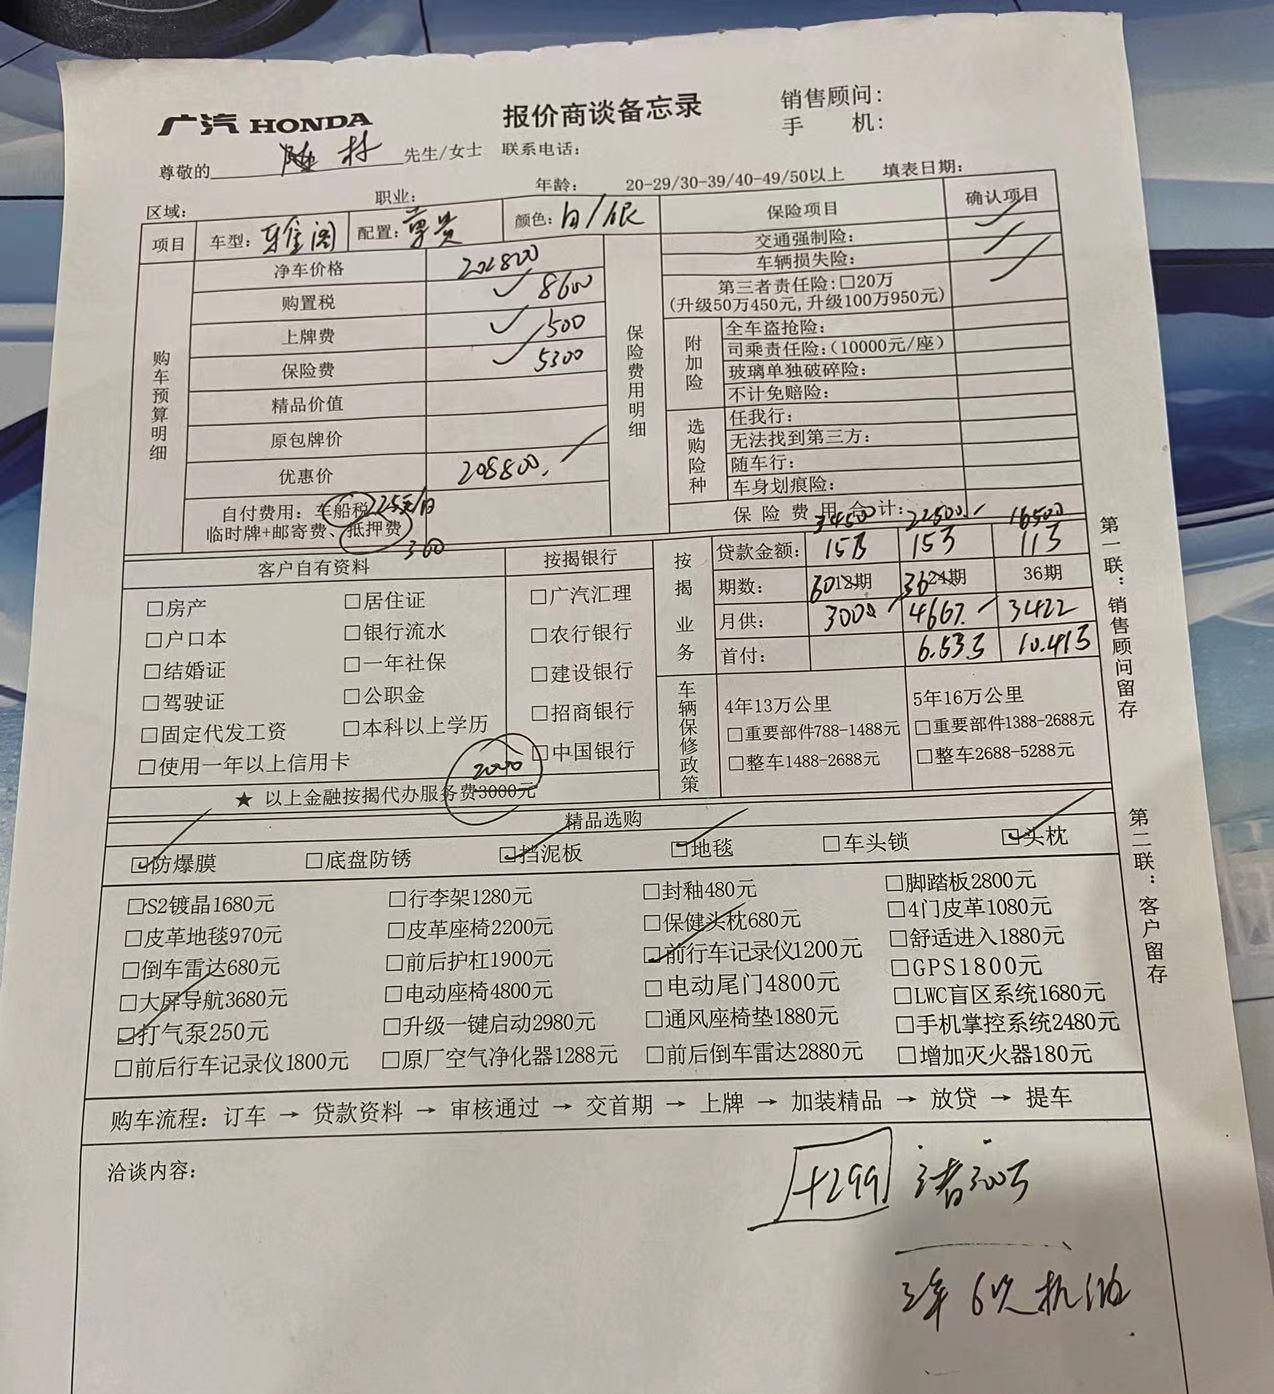 广汽 HONDA
报价商谈备忘录
销售顾问：
手 机：
尊敬的 林 先生/女士 联系电话：
区域： 职业： 年龄： 20-29/30-39/40-49/50以上 填表日期：
项目 车型：雅阁 配置：尊贵 颜色：白/银 保险项目 确认项目
购车预算明细
净车价格 202800
购置税 8600
上牌费 500
保险费 5300
精品价值
原包牌价
优惠价 208800.
自付费用：车船税
临时牌+邮寄费、抵押费 300
保险费用明细
交通强制险：
车辆损失险：
第三者责任险：□20万
(升级50万450元，升级100万950元)
附加险
全车盗抢险：
司乘责任险：（10000元/座）
玻璃单独破碎险：
不计免赔险：
选购险种
任我行：
无法找到第三方：
随车行：
车身划痕险：
保险费用合计：
34500 22500 16500
客户自有资料 按揭银行
□房产 □居住证 □广汽汇理
□户口本 □银行流水 □农行银行
□结婚证 □一年社保 □建设银行
□驾驶证 □公职金 □招商银行
□固定代发工资 □本科以上学历 □中国银行
□使用一年以上信用卡
2000
★ 以上金融按揭代办服务费3000元
按揭业务
贷款金额： 15万 15万 11万
期数： 60 12期 36 24期 36期
月供： 3000 4667. 3422
首付： 6.53万 10.41万
车辆保修政策
4年13万公里 5年16万公里
□重要部件788-1488元 □重要部件1388-2688元
□整车1488-2688元 □整车2688-5288元
精品选购
□防爆膜 □底盘防锈 □挡泥板 □地毯 □车头锁 □头枕
□S2镀晶1680元 □行李架1280元 □封釉480元 □脚踏板2800元
□皮革地毯970元 □皮革座椅2200元 □保健头枕680元 □4门皮革1080元
□倒车雷达680元 □前后护杠1900元 □前行车记录仪1200元 □舒适进入1880元
□大屏导航3680元 □电动座椅4800元 □电动尾门4800元 □GPS1800元
□打气泵250元 □升级一键启动2980元 □通风座椅垫1880元 □LWC盲区系统1680元
□前后行车记录仪1800元 □原厂空气净化器1288元 □前后倒车雷达2880元 □手机掌控系统2480元
□增加灭火器180元
购车流程：订车 → 贷款资料 → 审核通过 → 交首期 → 上牌 → 加装精品 → 放贷 → 提车
洽谈内容：
+299 三者300万
3年6次机油
第一联：销售顾问留存
第二联：客户留存